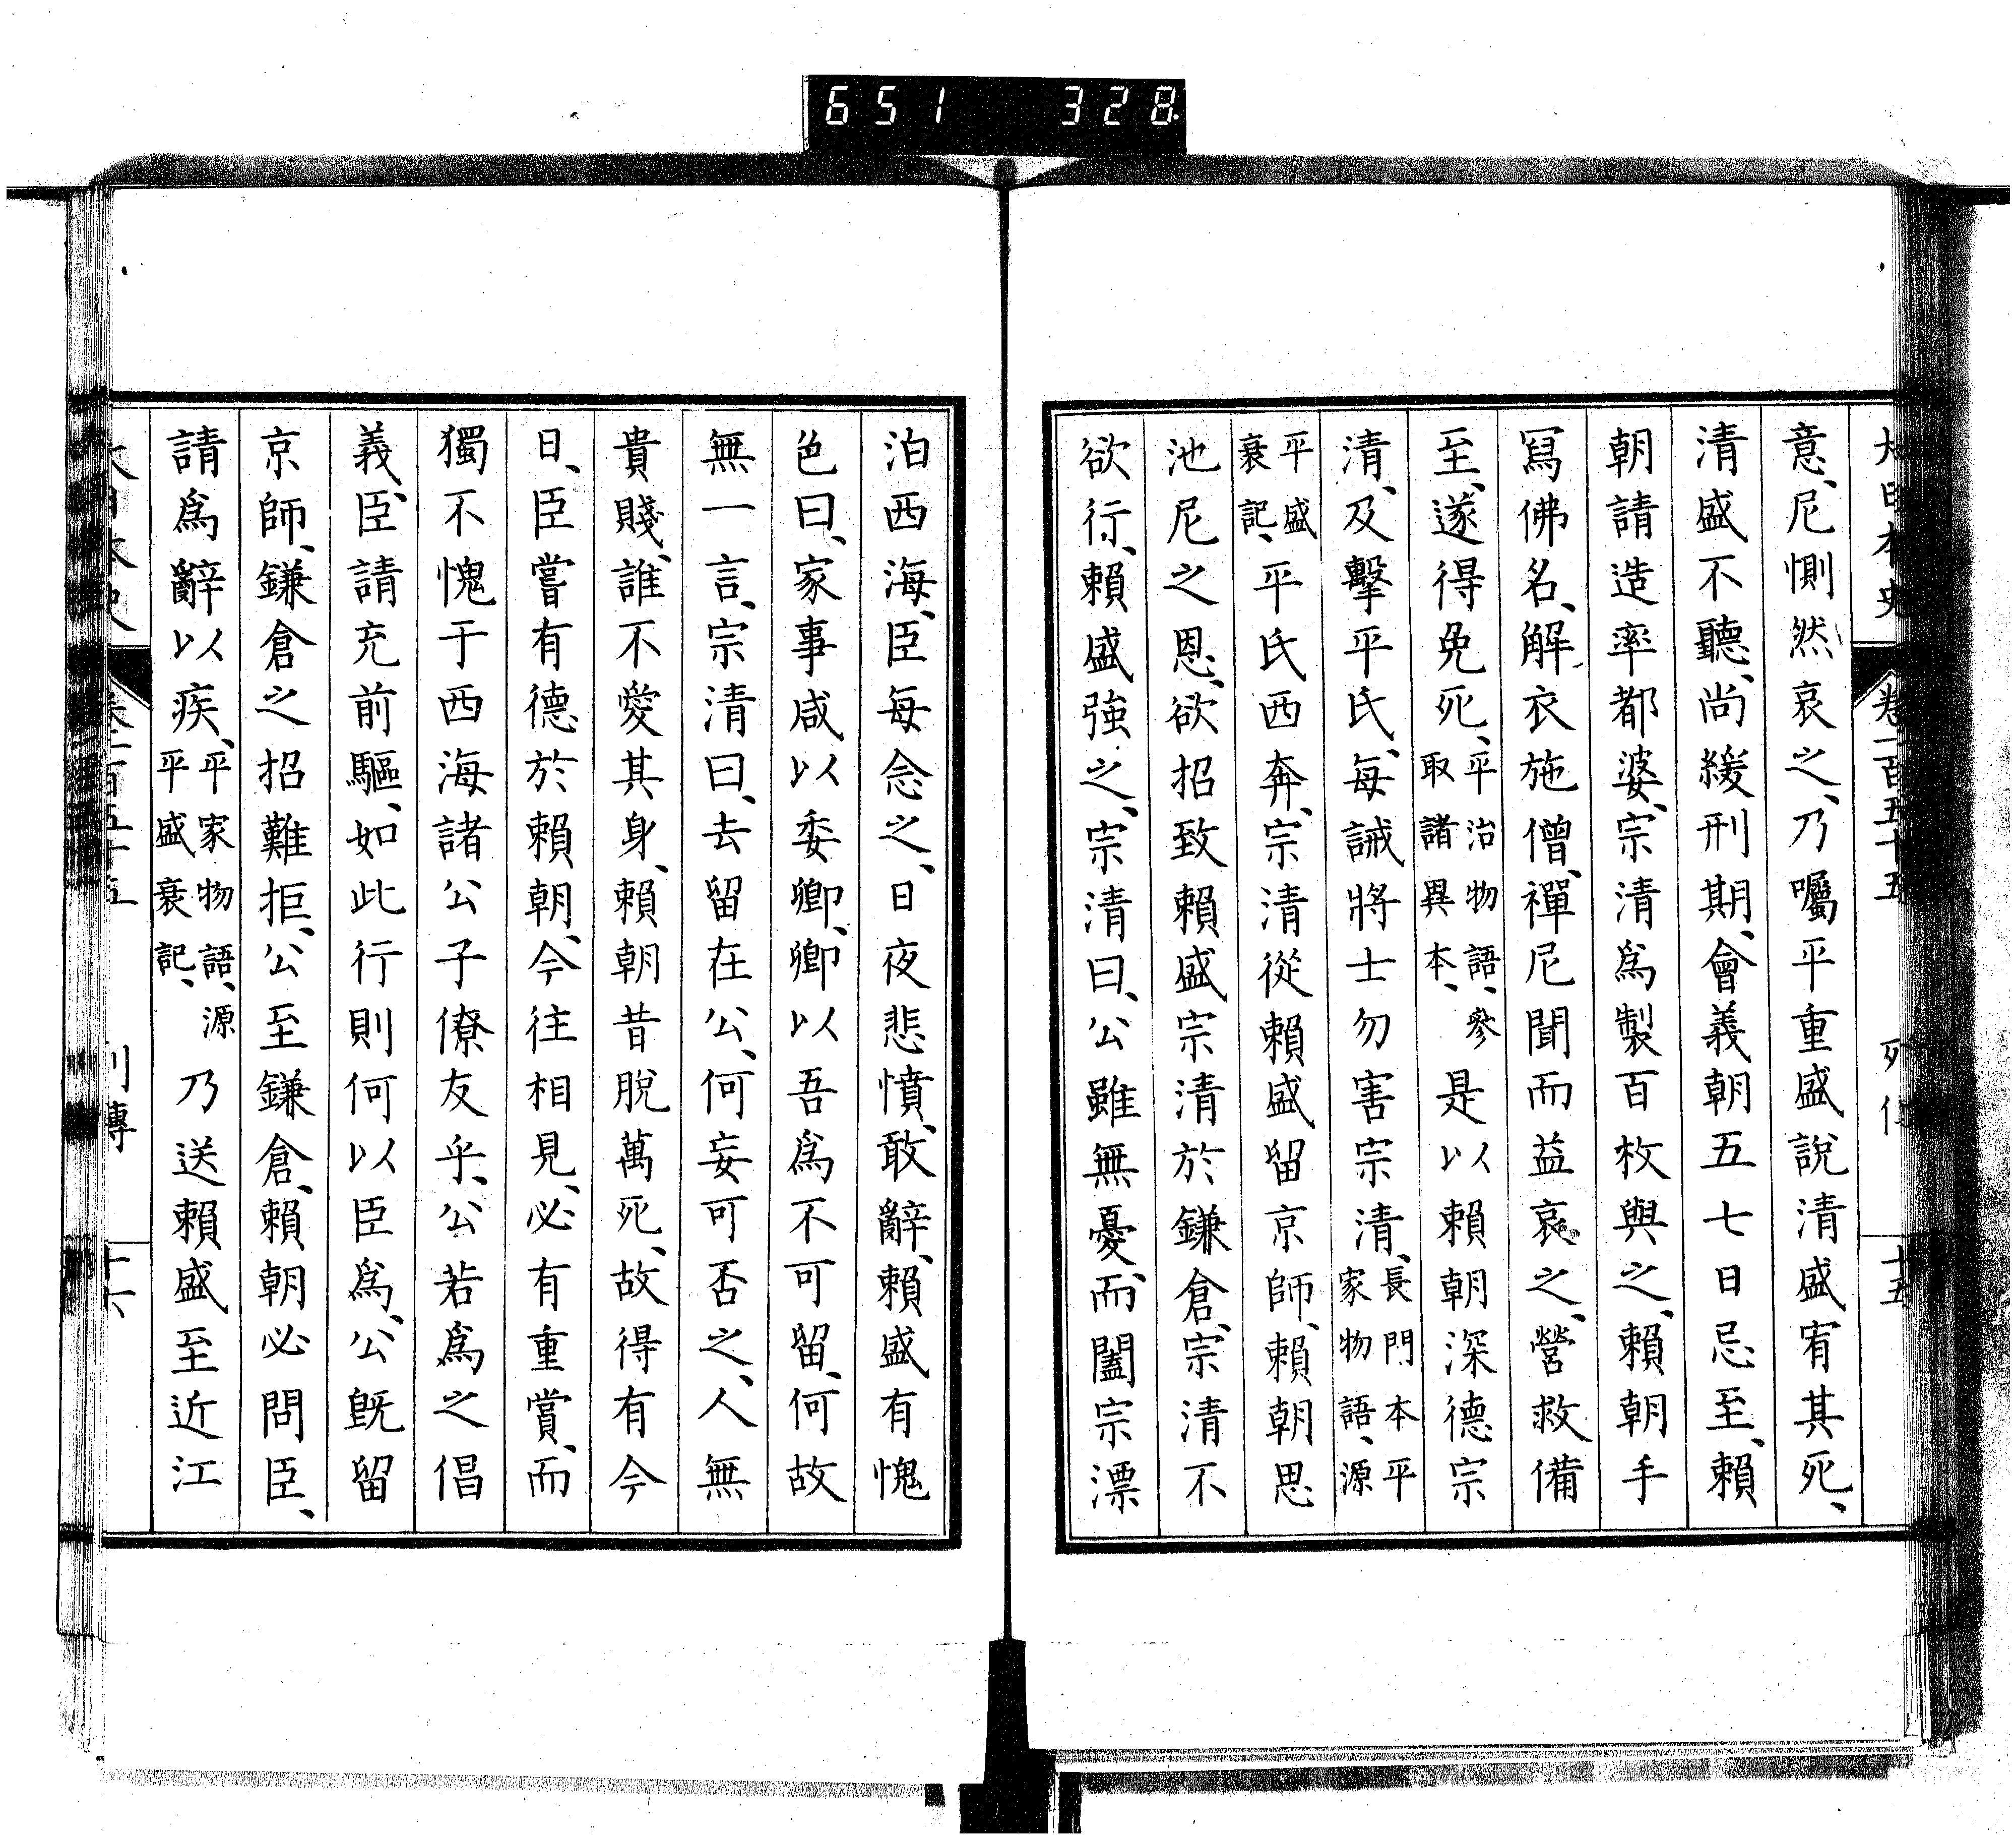 651 328
大日本史 卷一百五十五 列傳 十五
意、尼惻然哀之、乃囑平重盛說清盛宥其死、
清盛不聽、尚緩刑期、會義朝五七日忌至、賴
朝請造率都婆、宗清爲製百枚與之、賴朝手
冩佛名、解衣施僧、禪尼聞而益哀之、營救備
至、遂得免死、平治物語、參取諸異本、是以賴朝深德宗
清、及擊平氏、每誡將士勿害宗清、長門本平家物語、源
平盛衰記、平氏西奔、宗清從賴盛留京師、賴朝思
池尼之恩、欲招致賴盛宗清於鎌倉、宗清不
欲行、賴盛強之、宗清曰、公雖無憂、而闔宗漂
泊西海、臣每念之、日夜悲憤、敢辭、賴盛有愧
色曰、家事咸以委卿、卿以吾爲不可留、何故
無一言、宗清曰、去留在公、何妄可否之、人無
貴賤、誰不愛其身、賴朝昔脫萬死、故得有今
日、臣嘗有德於賴朝、今往相見、必有重賞、而
獨不愧于西海諸公子僚友乎、公若爲之倡
義、臣請充前驅、如此行則何以臣爲、公旣留
京師、鎌倉之招難拒、公至鎌倉、賴朝必問臣、
請爲辭以疾、平家物語、源平盛衰記、乃送賴盛至近江
大日本史 卷一百五十五 列傳 十六